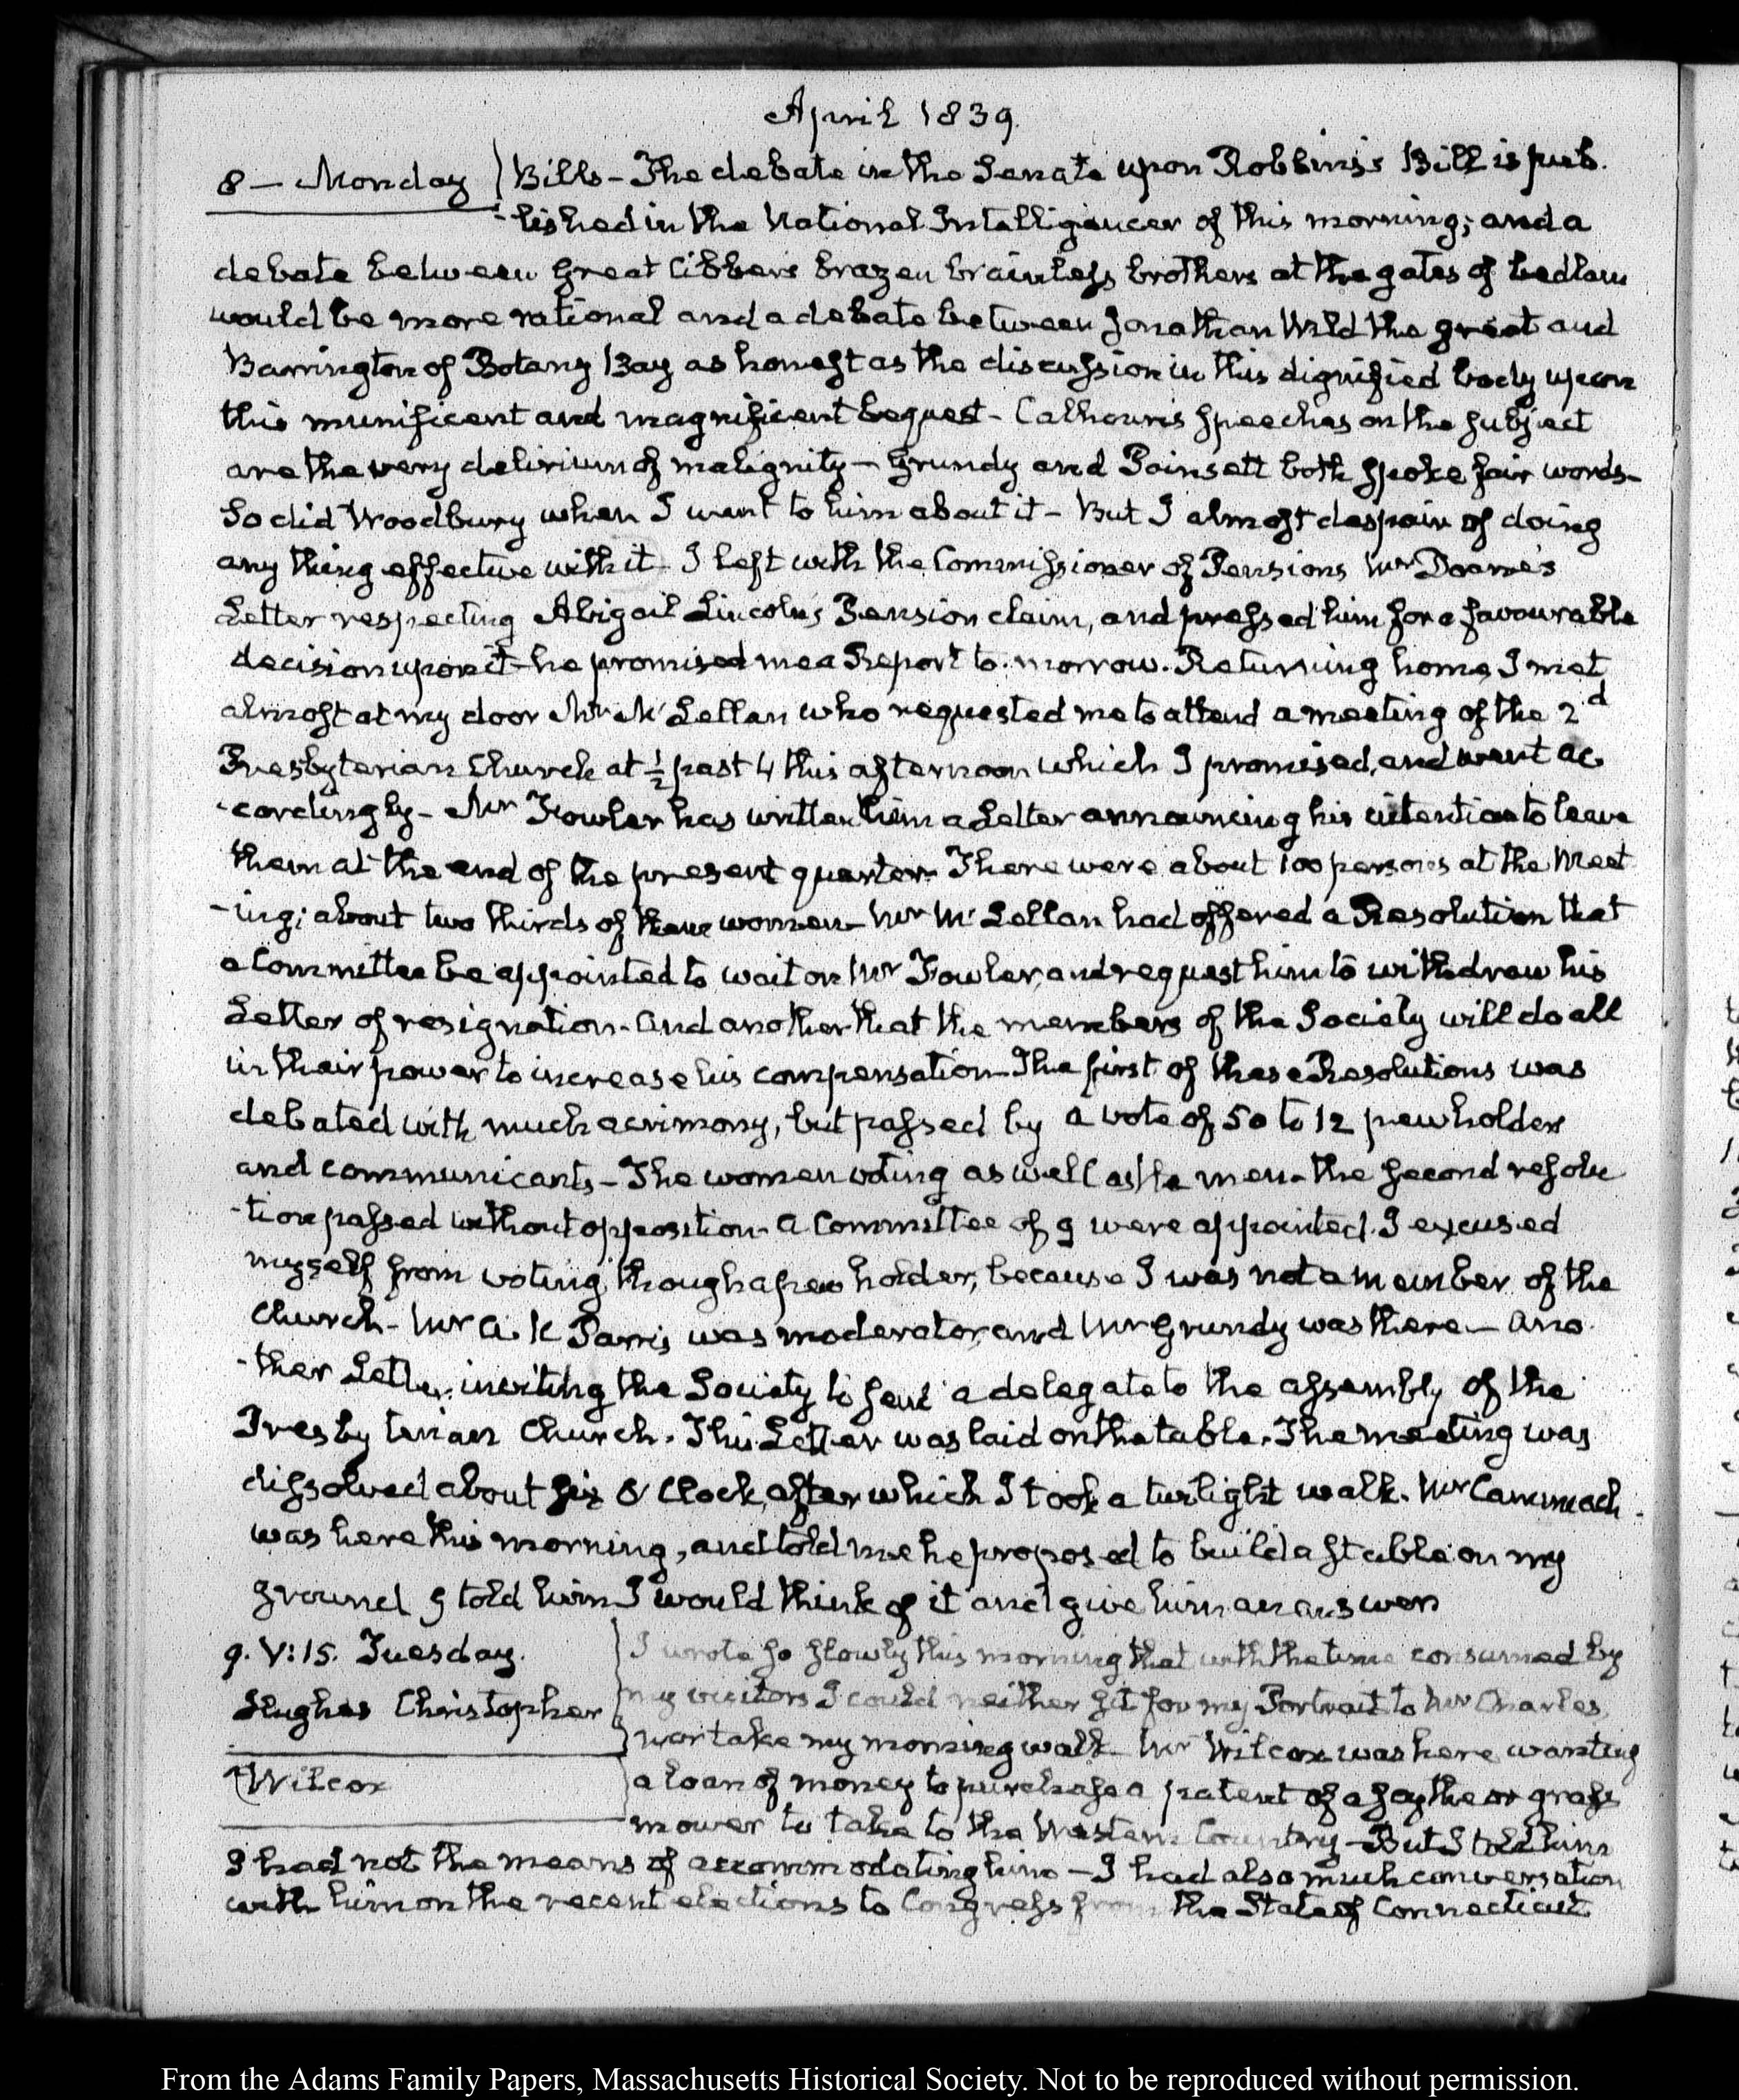 April 1839.
8 — Monday
Bills — The debate in the Senate upon Robbins's Bill is pub-
-lished in the National Intelligencer of this morning; and a
debate between Great Cibbers brazen brainless brothers at the gates of bedlam
would be more rational and a debate between Jonathan Wild the great and
Barrington of Botany Bay as honest as the discussion in this dignified body upon
this munificent and magnificent bequest – Calhoun's speeches on the subject
are the very delirium of malignity — Grundy and Poinsett both spoke fair words –
So did Woodbury when I went to him about it – But I almost despair of doing
any thing effective with it – I left with the Commissioner of Pensions Mr Doane's
Letter respecting Abigail Lincoln's Pension claim, and pressed him for a favourable
decision upon it – he promised me a Report to-morrow. Returning home, I met
almost at my door Mr McLellan who requested me to attend a meeting of the 2d
Presbyterian Church at ½ past 4 this afternoon which I promised, and went ac
-cordingly – Mr Fowler has written him a Letter announcing his intention to leave
them at the end of the present quarter. There were about 100 persons at the Meet
-ing; about two thirds of them women – Mr McLellan had offered a Resolution that
a Committee be appointed to wait on Mr Fowler, and request him to withdraw his
Letter of resignation – and another that the members of the Society will do all
in their power to increase his compensation – The first of these Resolutions was
debated with much acrimony, but passed by a vote of 50 to 12 pewholders
and communicants – The women voting as well as the men – the second resolu
-tion passed without opposition – A Committee of 9 were appointed. I excused
myself from voting, though a pew holder, because I was not a member of the
Church – Mr A. K Parris was moderator, and Mr Grundy was there — Ano
-ther Letter inviting the Society to send a delegate to the assembly of the
Presbyterian Church. This Letter was laid on the table. The meeting was
dissolved about six O'Clock, after which I took a twilight walk. Mr Cammack
was here this morning, and told me he proposed to build a stable on my
ground I told him I would think of it and give him an answer
9. V:15. Tuesday.
Hughes Christopher
Wilcox
I wrote so slowly this morning that with the time consumed by
my visitors I could neither sit for my Portrait to Mr Charles,
nor take my morning walk – Mr Wilcox was here wanting
a loan of money to purchase a patent of a scythe or grass
mower to take to the Western Country – But I told him
I had not the means of accommodating him — I had also much conversation
with him on the recent elections to Congress from the State of Connecticut
From the Adams Family Papers, Massachusetts Historical Society. Not to be reproduced without permission.